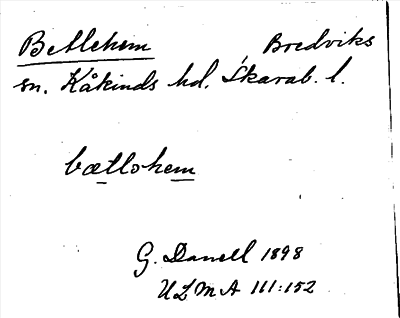 Betlehem, Bredviks
sn. Kåkinds hd. Skarab. l.
bætlohem
G. Danell 1898
ULMA 111:152